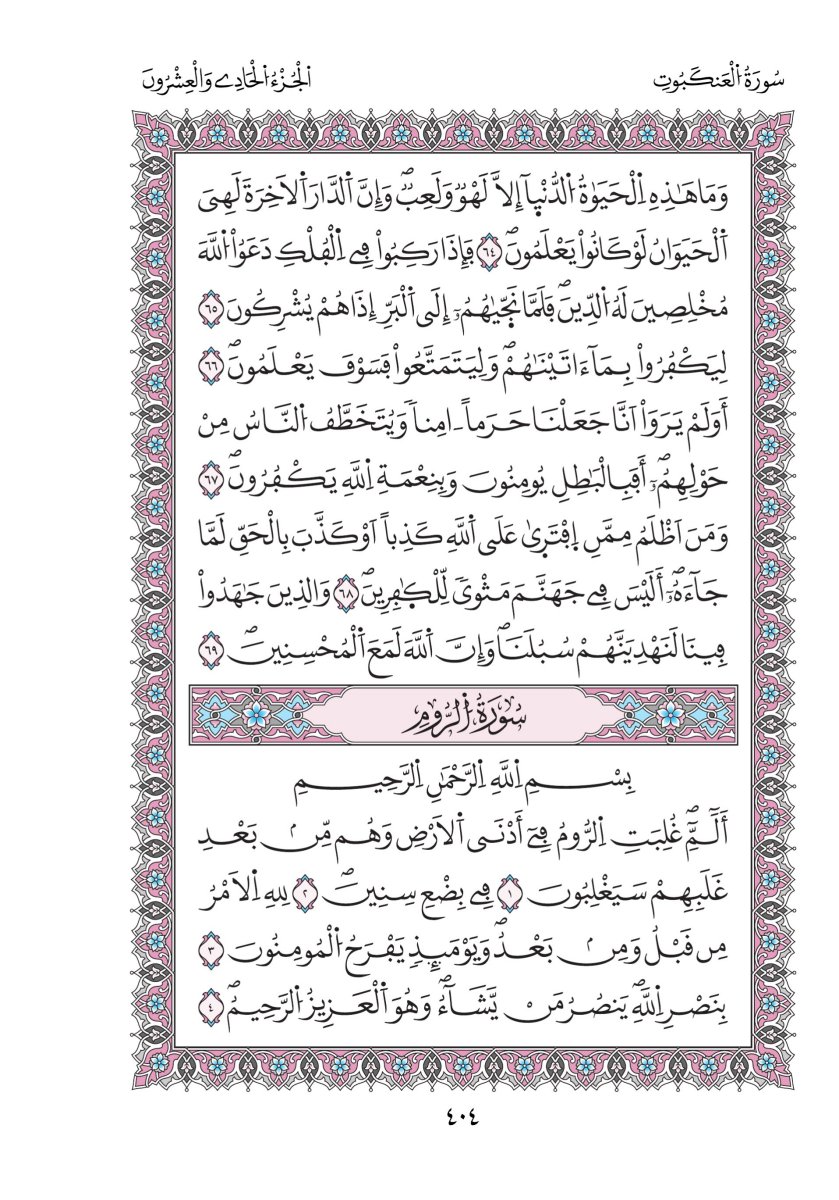 سُورَةُ اُ۬لْعَنكَبُوتِ
اَ۬لْجُزْءُ اُ۬لْحَادِے وَالْعِشْرُونَ
وَمَا هَٰذِهِ اِ۬لْحَيَوٰةُ اُ۬لدُّنْي۪آ إِلَّا لَهْوٞ وَلَعِبٞۖ وَإِنَّ اَ۬لدَّارَ اَ۬لَاخِرَةَ لَهِيَ
اَ۬لْحَيَوَانُ لَوْ كَانُواْ يَعْلَمُونَۖ ٦٤ فَإِذَا رَكِبُواْ فِے اِ۬لْفُلْكِ دَعَوُاْ اُ۬للَّهَ
مُخْلِصِينَ لَهُ اُ۬لدِّينَۖ فَلَمَّا نَجّ۪يٰهُمُۥٓ إِلَى اَ۬لْبَرِّ إِذَا هُمْ يُشْرِكُونَ ٦٥
لِيَكْفُرُواْ بِمَآ ءَاتَيْنَٰهُمْۖ وَلِيَتَمَتَّعُواْ فَسَوْفَ يَعْلَمُونَۖ ٦٦
أَوَلَمْ يَرَوَاْ اَنَّا جَعَلْنَا حَرَماً ـ اٰمِناٗ وَيُتَخَطَّفُ اُ۬لنَّاسُ مِنْ
حَوْلِهِمُۥٓۖ أَفَبِالْبَٰطِلِ يُومِنُونَ وَبِنِعْمَةِ اِ۬للَّهِ يَكْفُرُونَۖ ٦٧
وَمَنَ اَظْلَمُ مِمَّنِ اِ۪فْتَر۪يٰ عَلَى اَ۬للَّهِ كَذِباً اَوْ كَذَّبَ بِالْحَقِّ لَمَّا
جَآءَهُۥٓۖ أَلَيْسَ فِے جَهَنَّمَ مَثْويٗ لِّلْكٰ۪فِرِينَۖ ٦٨ وَالذِينَ جَٰهَدُواْ
فِينَا لَنَهْدِيَنَّهُمْ سُبُلَنَاۖ وَإِنَّ اَ۬للَّهَ لَمَعَ اَ۬لْمُحْسِنِينَۖ ٦٩
سُورَةُ اُ۬لرُّومِ
بِسْمِ اِ۬للَّهِ اِ۬لرَّحْمَٰنِ اِ۬لرَّحِيمِ
أَلَٓمِّٓۖ غُلِبَتِ اِ۬لرُّومُ فِےٓ أَدْنَى اَ۬لَارْضِ وَهُم مِّنۢ بَعْدِ
غَلَبِهِمْ سَيَغْلِبُونَ ١ فِے بِضْعِ سِنِينَۖ ٢ لِلهِ اِ۬لَامْرُ
مِن قَبْلُ وَمِنۢ بَعْدُۖ وَيَوْمَئِذٖ يَفْرَحُ اُ۬لْمُومِنُونَ ٣
بِنَصْرِ اِ۬للَّهِۖ يَنصُرُ مَنْ يَّشَآءُۖ وَهُوَ اَ۬لْعَزِيزُ اُ۬لرَّحِيمُۖ ٤
٤٠٤